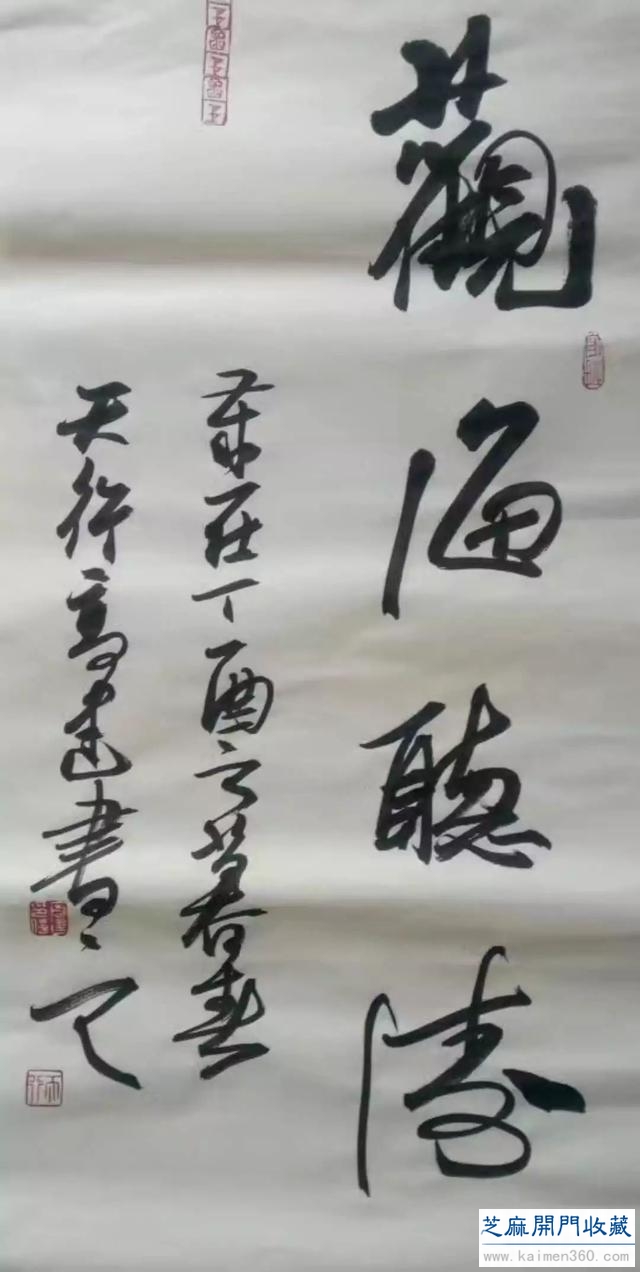 觀海聽濤
歲在丁酉之暮春
天行高建書之
芝麻開門收藏
www.kaimen360.com